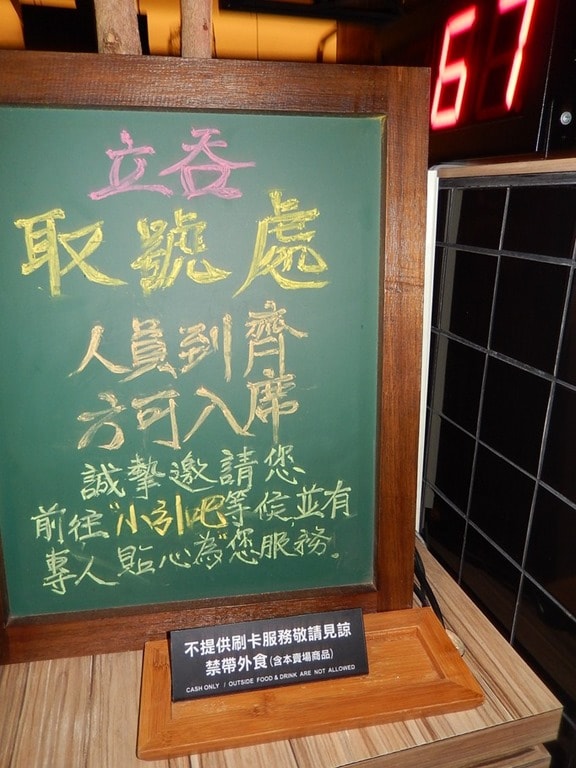 67
立吞
取號處
人員到齊
方可入席
誠摯邀請您
前往"小引吧"等候並有
專人貼心為您服務.
不提供刷卡服務敬請見諒
禁帶外食(含本賣場商品)
CASH ONLY / OUTSIDE FOOD & DRINK ARE NOT ALLOWED